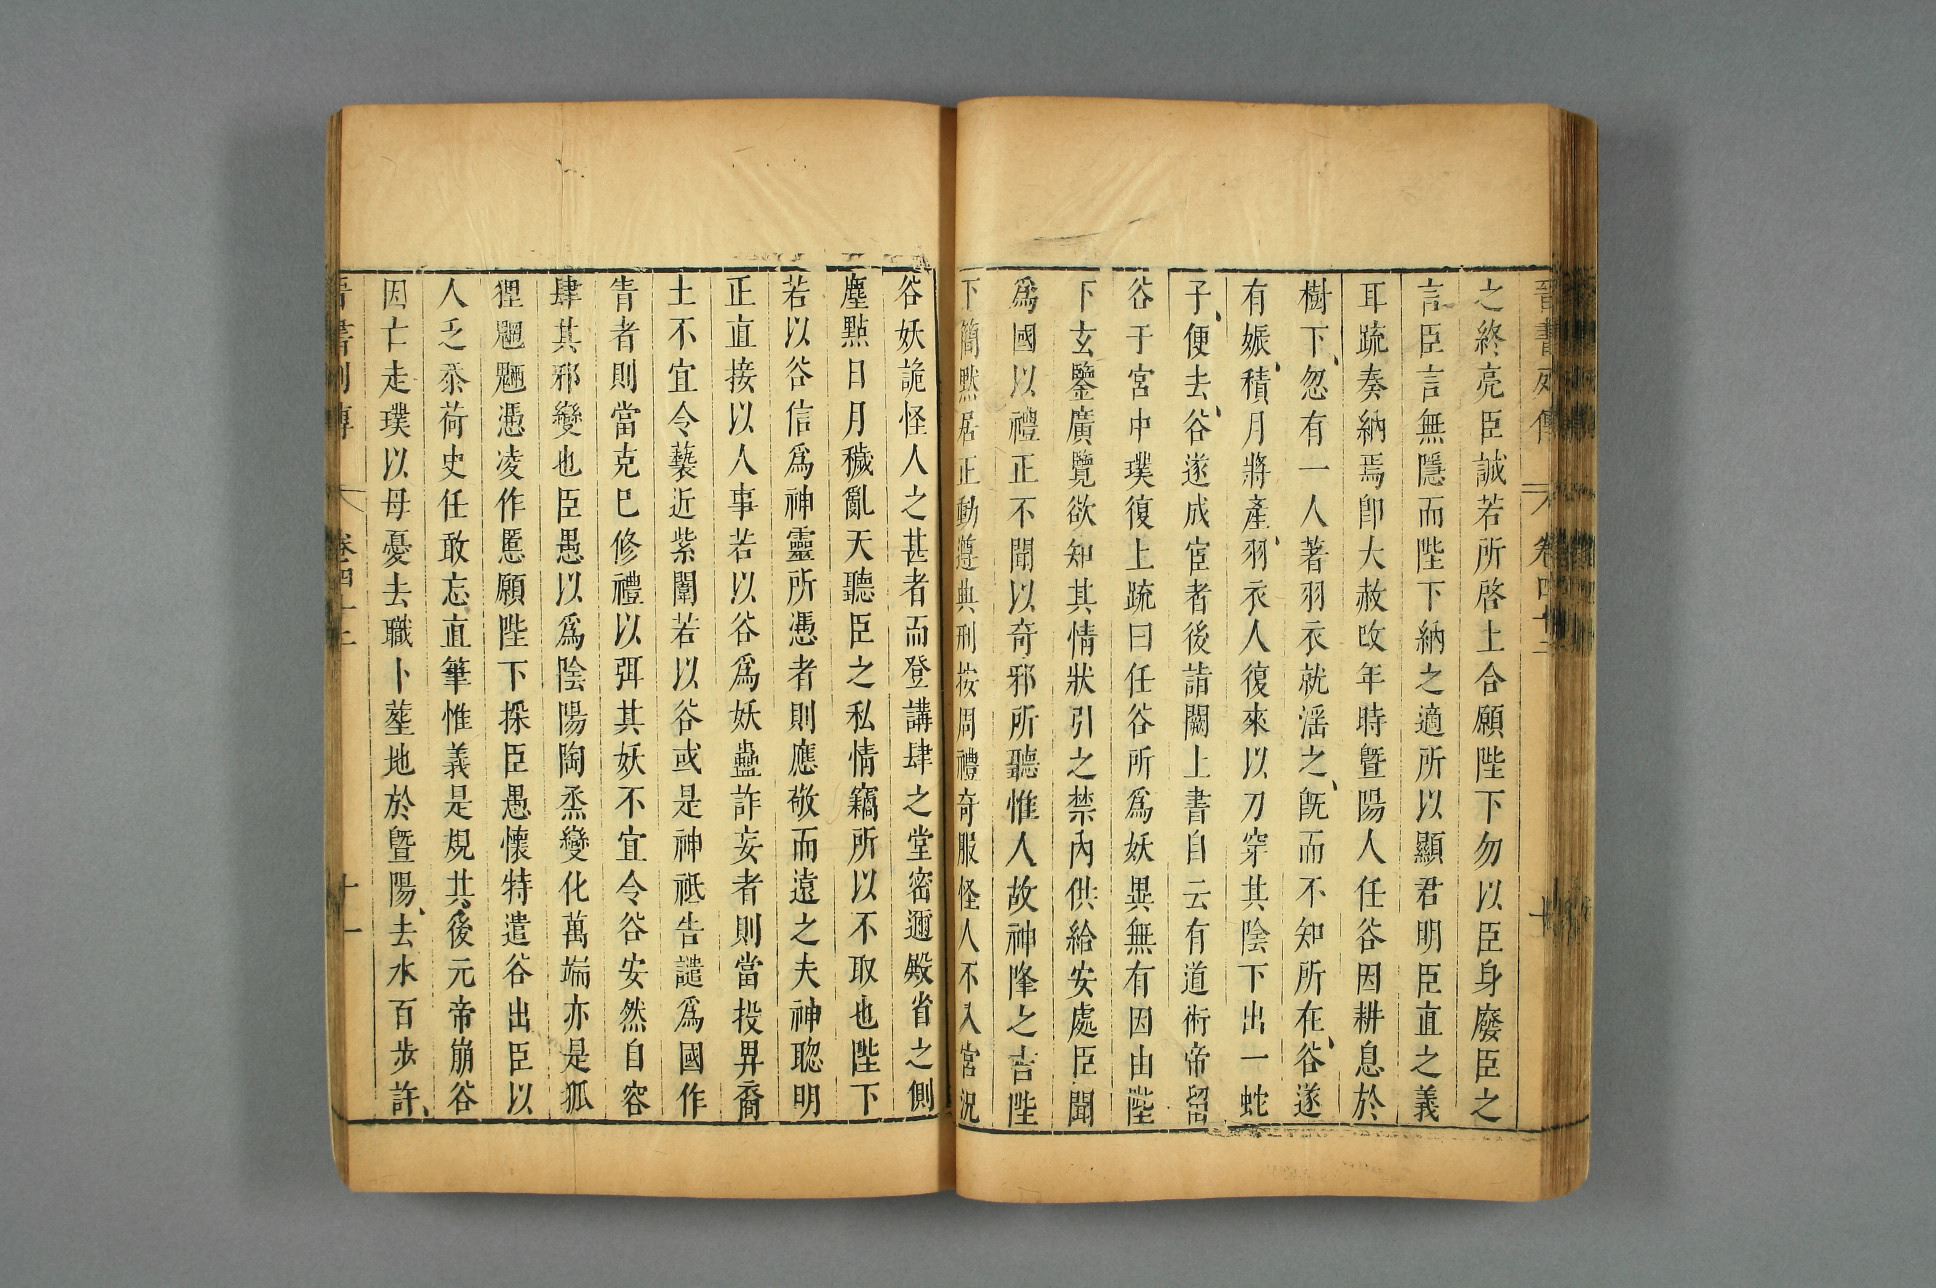 晉書列傳 卷四十二 十
之終亮臣誠若所啓上合願陛下勿以臣身廢臣之
言臣言無隱而陛下納之適所以顯君明臣直之義
耳疏奏納焉卽大赦改年時曁陽人任谷因耕息於
樹下忽有一人著羽衣就淫之旣而不知所在谷遂
有娠積月將產羽衣人復來以刀穿其陰下出一蛇
子便去谷遂成宦者後詣闕上書自云有道術帝留
谷于宮中璞復上疏曰任谷所爲妖異無有因由陛
下玄鑒廣覽欲知其情狀引之禁內供給安處臣聞
爲國以禮正不聞以奇邪所聽惟人故神降之吉陛
下簡默居正動遵典刑按周禮奇服怪人不入宮況
谷妖詭怪人之甚者而登講肆之堂密邇殿省之側
塵點日月穢亂天聽臣之私情竊所以不取也陛下
若以谷信爲神靈所憑者則應敬而遠之夫神聰明
正直接以人事若以谷爲妖蠱詐妄者則當投畀裔
土不宜令褻近紫闈若以谷或是神祗告譴爲國作
眚者則當克已修禮以弭其妖不宜令谷安然自容
肆其邪變也臣愚以爲陰陽陶烝變化萬端亦是狐
狸魍魎憑凌作慝願陛下採臣愚懷特遣谷出臣以
人乏忝荷史任敢忘直筆惟義是規其後元帝崩谷
因亡走璞以母憂去職卜葬地於曁陽去水百步許
晉書列傳 卷四十二 十一